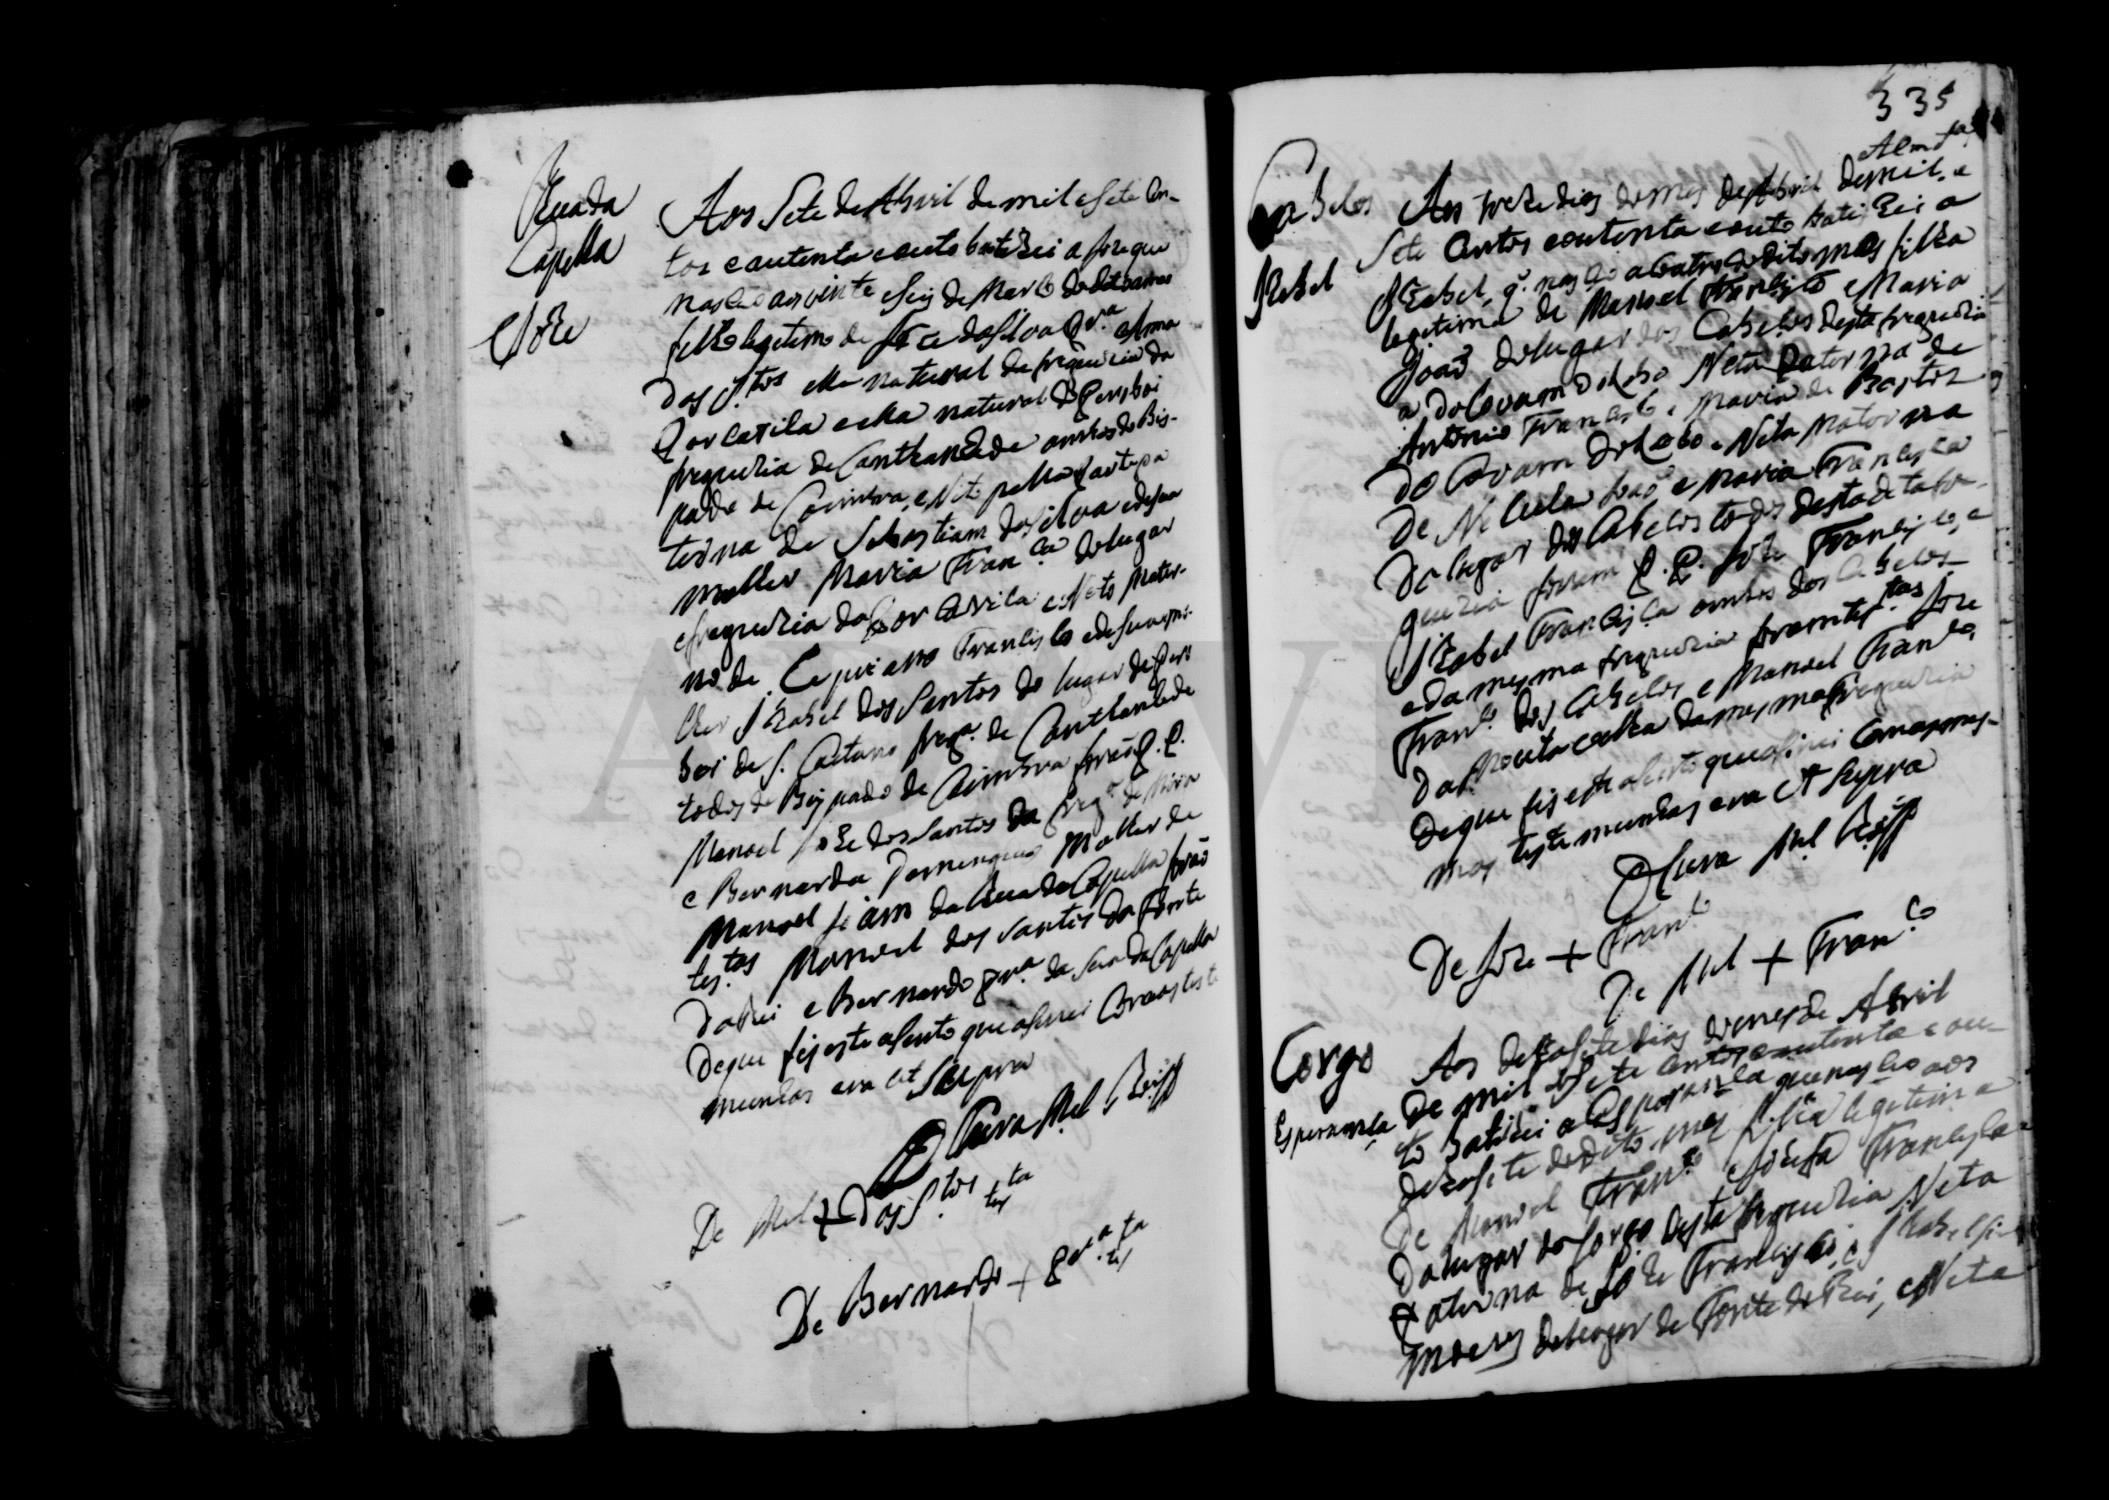 Rua da
Capella
Joze
Aos Sete de Abril de mil e sete Cen-
tos e outenta e outo batizei a Joze que
nasceo aos vinte e seis de Marco do dito anno
filho legitimo de Joze da Silva e Anna
dos S.tos elle natural da freguezia da
e ella natural de
freguezia de Cantanhede ambos do Bis-
pado de Coimbra, e Neto pella parte pa
terna de Sebastiam da Silva e de sua
molher Maria Fran.ca do lugar
e freguezia da e Neto Mater-
no de Cepriano Francisco e de sua mo-
lher Izabel dos Santos do lugar de
de S. Caetano freg.a de Cantanhede
todos do Bispado de Coimbra forão P. P.
Manoel Joze dos Santos da freg.a de Mira
e Bernarda Domingues Molher de
Manoel da Rua da Capella forão
tes.tas Manoel dos Santos da Fonte
e Bernardo da Rua da Capella
de que fiz este asento que asinei Com as teste
munhas era ut Supra
O Cura M.el
De M.el + dos S.tos tes.ta
De Bernardo + tes.ta
335
Cabelos
Izabel
Aos treze dias do mes de Abril de mil e
Sete Centos e outenta e outo batizei a
Izabel, q. nasceo a coatro do dito mes filha
legitima de Manoel Francisco e Maria
João do lugar dos Cabelos desta freguezia
Neta Paterna de
Antonio Francisco e Maria de
do Covam do Lobo e Neta Materna
de João e Maria Francisca
do lugar dos Cabelos todos desta dita fre-
guezia foram P. P. Joze Francisco, e
Izabel Francisca ambos dos Cabelos
e da mesma freguezia foram tes.tas Joze
Fran.co dos Cabelos e Manoel Fran.co
da da mesma freguezia
de que fiz este asento que asinei Com as mes-
mas testemunhas era ut Supra
O Cura M.el
De Joze + Fran.co
De M.el + Fran.co
Corgo
Esperança
Aos dezasete dias do mes de Abril
de mil e Sete Centos e outenta e ou-
to batizei a Esperança que nasceo aos
dezasete do dito mes filha legitima
de Manoel Fran.co e Josefa Francisca
do lugar do Corgo desta freguezia Neta
Paterna de Joze Francisco, e Izabel
do lugar de Fonte do Rei, e Neta